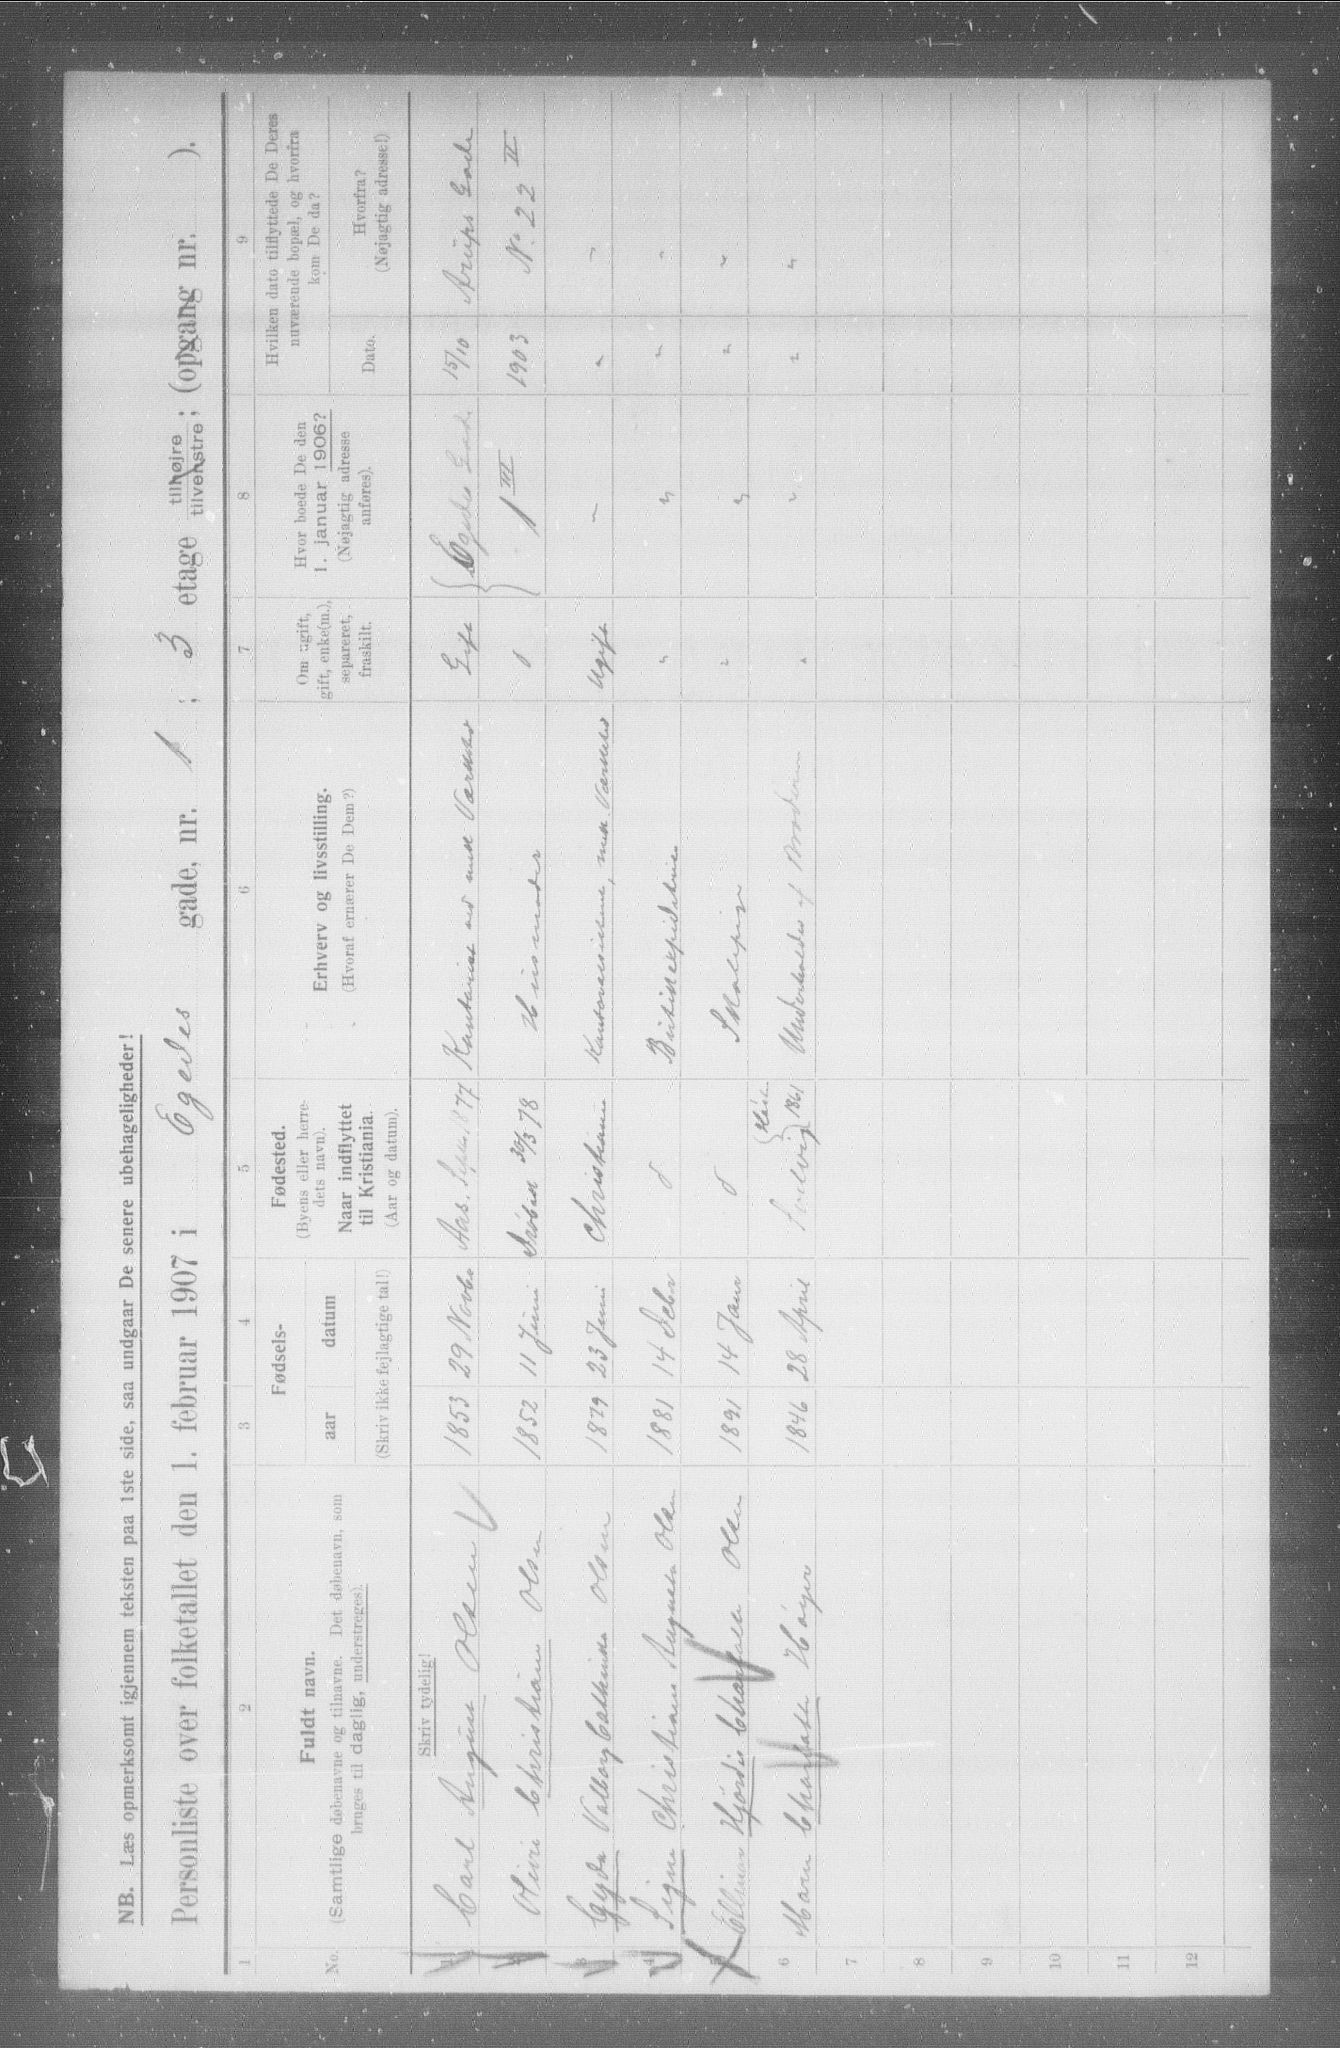 NB. Læs opmerksomt igjennem teksten paa 1ste side, saa undgaar De senere ubehageligheder!
Personliste over folketallet den 1. februar 1907 i Egedes gade, nr. 1; 3 etage tilhøjre tilvenstre; (opgang nr. ).
1 2 3 4 5 6 7 8 9
No.
Fuldt navn.
(Samtlige døbenavne og tilnavne. Det døbenavn, som
bruges til daglig, understreges).
Fødsels-
aar datum
(Skriv ikke fejlagtige tal!)
Fødested.
(Byens eller herre-
dets navn).
Naar indflyttet
til Kristiania.
(Aar og datum).
Erhverv og livsstilling.
(Hvoraf ernærer De Dem?)
Om ugift,
gift, enke(m.),
separeret,
fraskilt.
Hvor boede De den
1. januar 1906?
(Nøjagtig adresse
anføres).
Hvilken dato tilflyttede De Deres
nuværende bopæl, og hvorfra
kom De da?
Dato.
Hvorfra?
(Nøjagtig adresse!)
Skriv tydelig!
1 Carl August Olsen 1853 29 Novbr Aas. 77 Gift Egedes Gade 15/10 Arups Gade
2 Christiane Olsen 1852 11 Juni Drøbak 30/3 78 Husmoder 1 III 1903 No. 22 II
3 Gyda Valborg Cathinka Olsen 1879 23 Juni Christiania Ugift " " "
4 Signe Christiane Augusta Olsen 1881 14 Febr Butikexpeditrice " " " "
5 Ellinor Hjørdis Charlotte Olsen 1891 14 Janr Skolepige " " " "
6 Maren Charlotte Høyer 1846 28 April 1861 Underholdes af Broderen " " " "
7
8
9
10
11
12